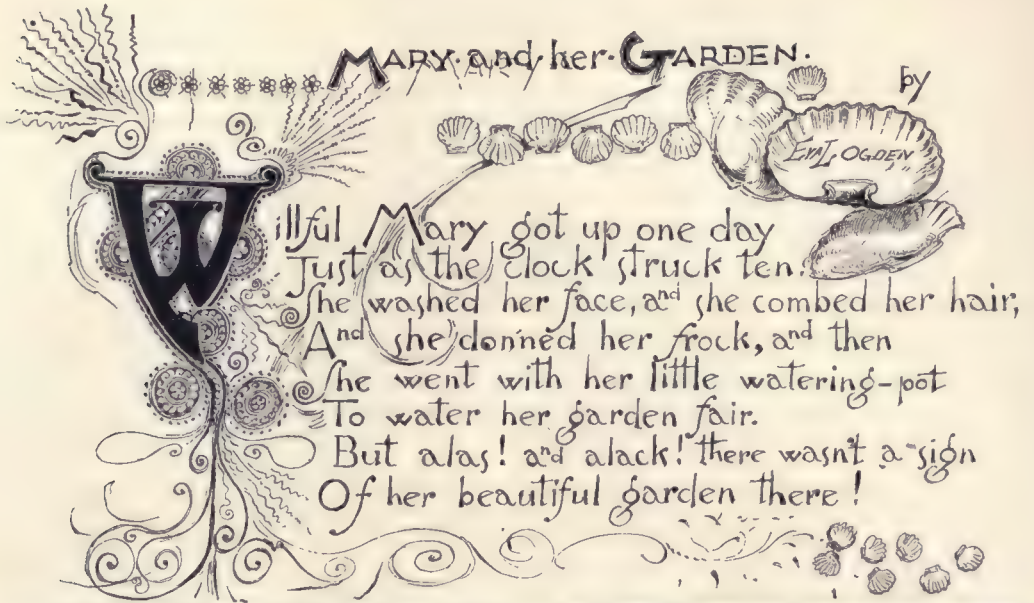 MARY·and·her·GARDEN·
by
EVA L. OGDEN
Willful Mary got up one day
Just as the clock struck ten.
She washed her face, and she combed her hair,
And she donned her frock, and then
She went with her little watering-pot
To water her garden fair.
But alas! and alack! there wasn't a sign
Of her beautiful garden there!